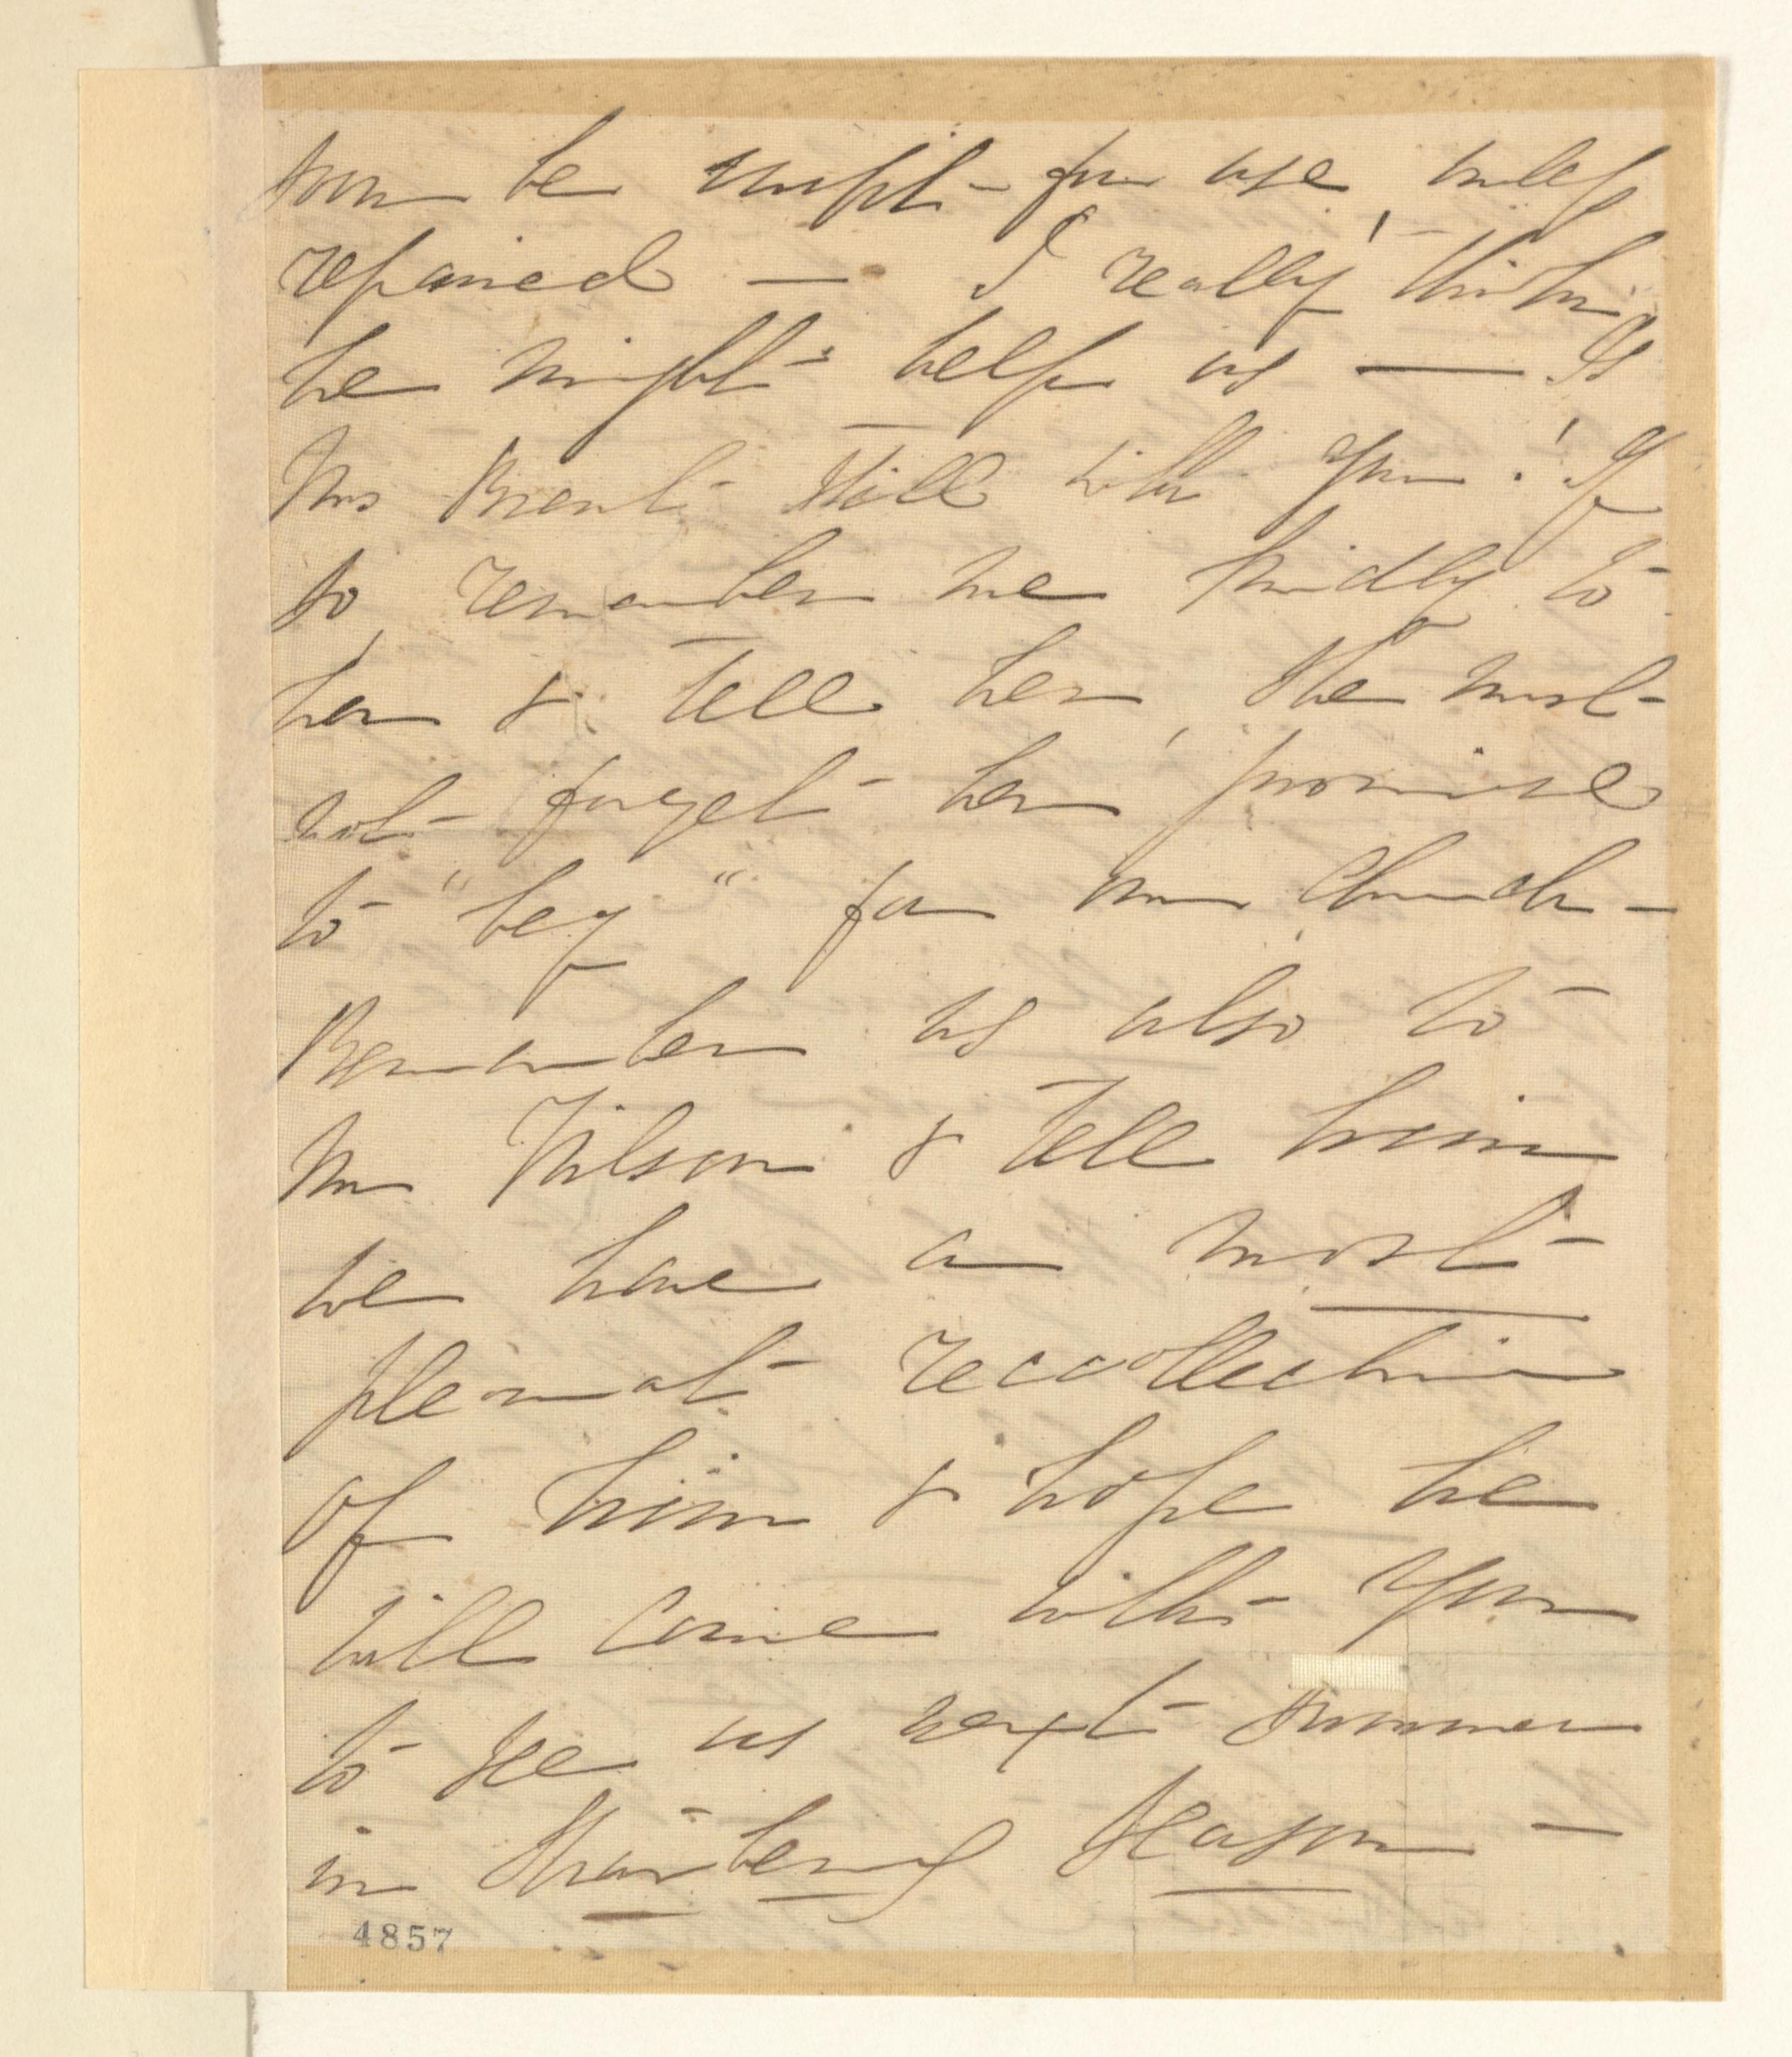 soon be unfit for use, unless
repaired — I really think
he might help us — Is
Mrs Brent still with you? If
so remember me kindly to
her & tell her, she must
not forget her promise
to "beg" for our Church —
Remember us also to
Mr Wilson & tell him
we have a most
pleasant reccollection
of him & hope he
will come with you
to see us next summer
in Strawberry Season —
4857